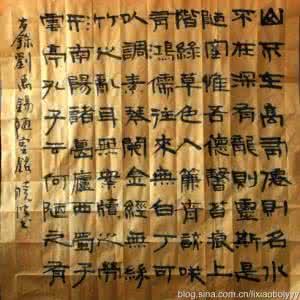 山不在高有僊則名水
不在深有龍則靈斯是
陋室惟吾德馨苔痕上
階綠草色入簾青談咲
有鴻儒往來無白丁可
以調素琴閱金經無絲
竹之亂耳無案牘之勞
形南陽諸葛廬西蜀子
雲亭孔子云何陋之有
右錄劉禹錫陋室銘 曉波書
blog.sina.com.cn/lixiaobolyyy